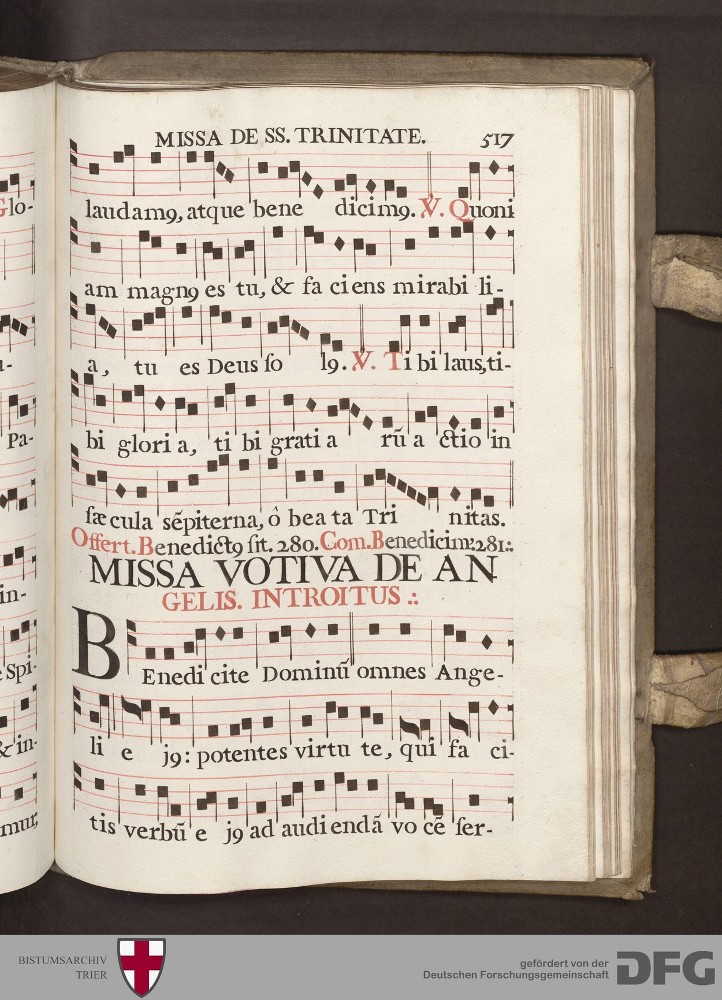 MISSA DE SS. TRINITATE. 517
Glo-
laudam9, atque bene dicim9. V. Quoni
am magn9 es tu, & fa ciens mirabi li-
a, tu es Deus ſo l9. V. Ti bi laus, ti-
Pa-
bi glori a, ti bi grati a rũ a ctio in
ſæcula sẽpiterna, ô bea ta Tri nitas.
Offert. Benedict9 ſit. 280. Com. Benedicim9. 281.:.
MISSA VOTIVA DE AN
in-
GELIS. INTROITUS .:
Spi-
BEnedi cite Dominũ omnes Ange-
& in-
li e j9: potentes virtu te, qui fa ci-
mur,
tis verbũ e j9 ad audi endã vo cẽ ſer-
BISTUMSARCHIV
TRIER
gefördert von der
Deutschen Forschungsgemeinschaft
DFG